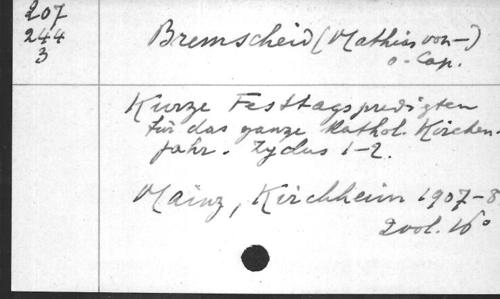 207
244
3
Bremscheid (Mathias von-)
o. Cap.
Kurze Festtagspredigten
für das ganze kathol. Kirchen-
jahr. Zyclus 1-2.
Mainz, Kirchheim 1907-8
2 vol. 16°